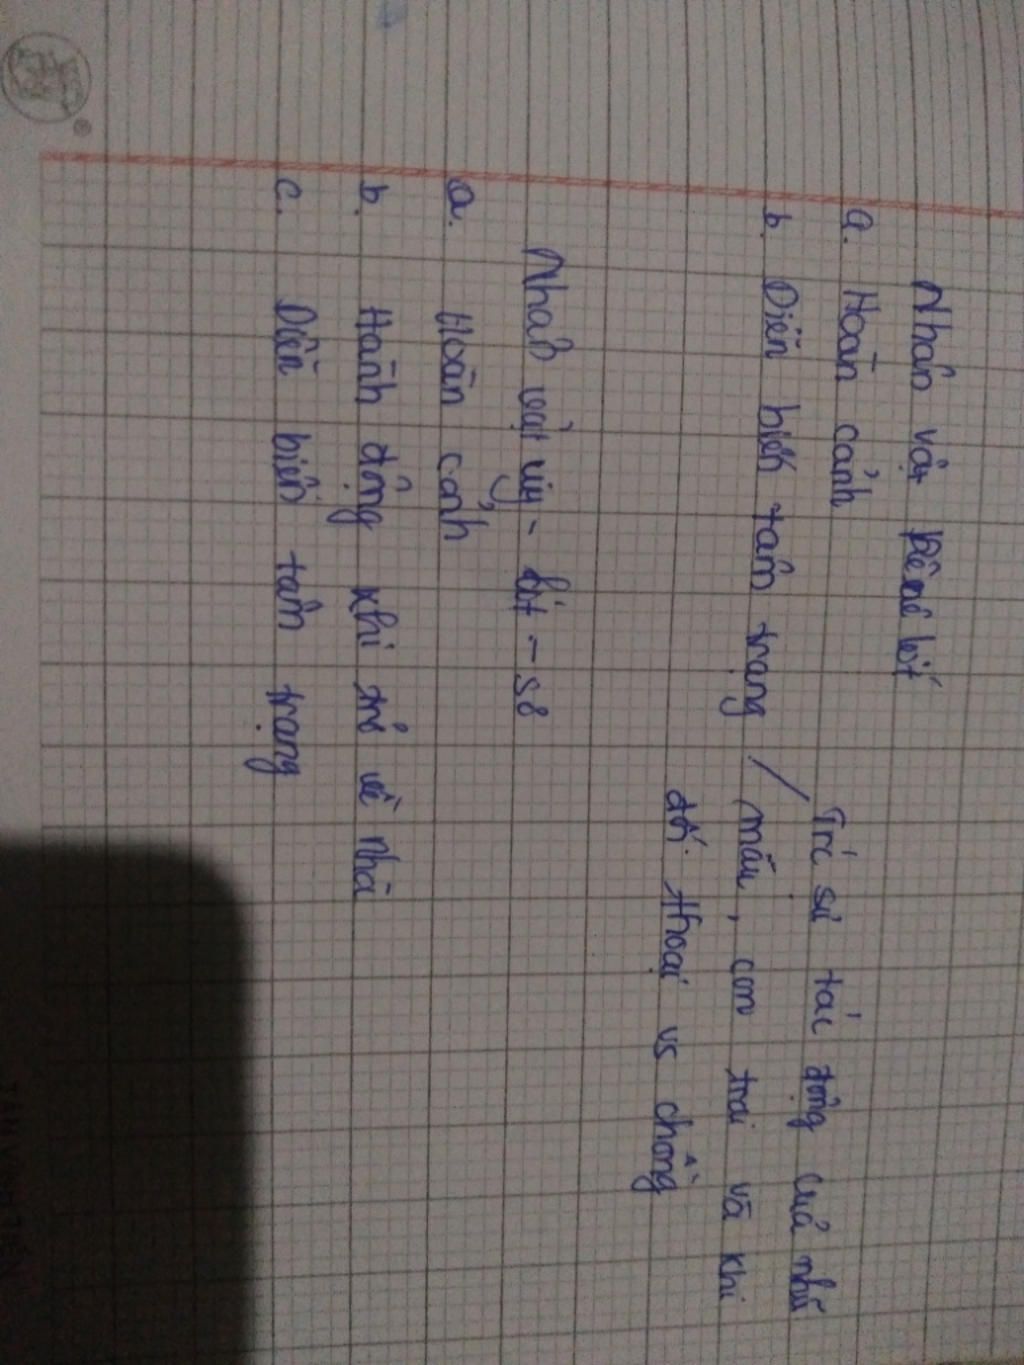 Nhân vật Pênêlốp
a. Hoàn cảnh
b. Diễn biến tâm trạng / Trc sự tác động của nhũ
mẫu, con trai và khi
đối thoại vs chồng
Nhân vật Uy-lít-sơ
a. Hoàn cảnh
b. Hành động khi trở về nhà
c. Diễn biến tâm trạng